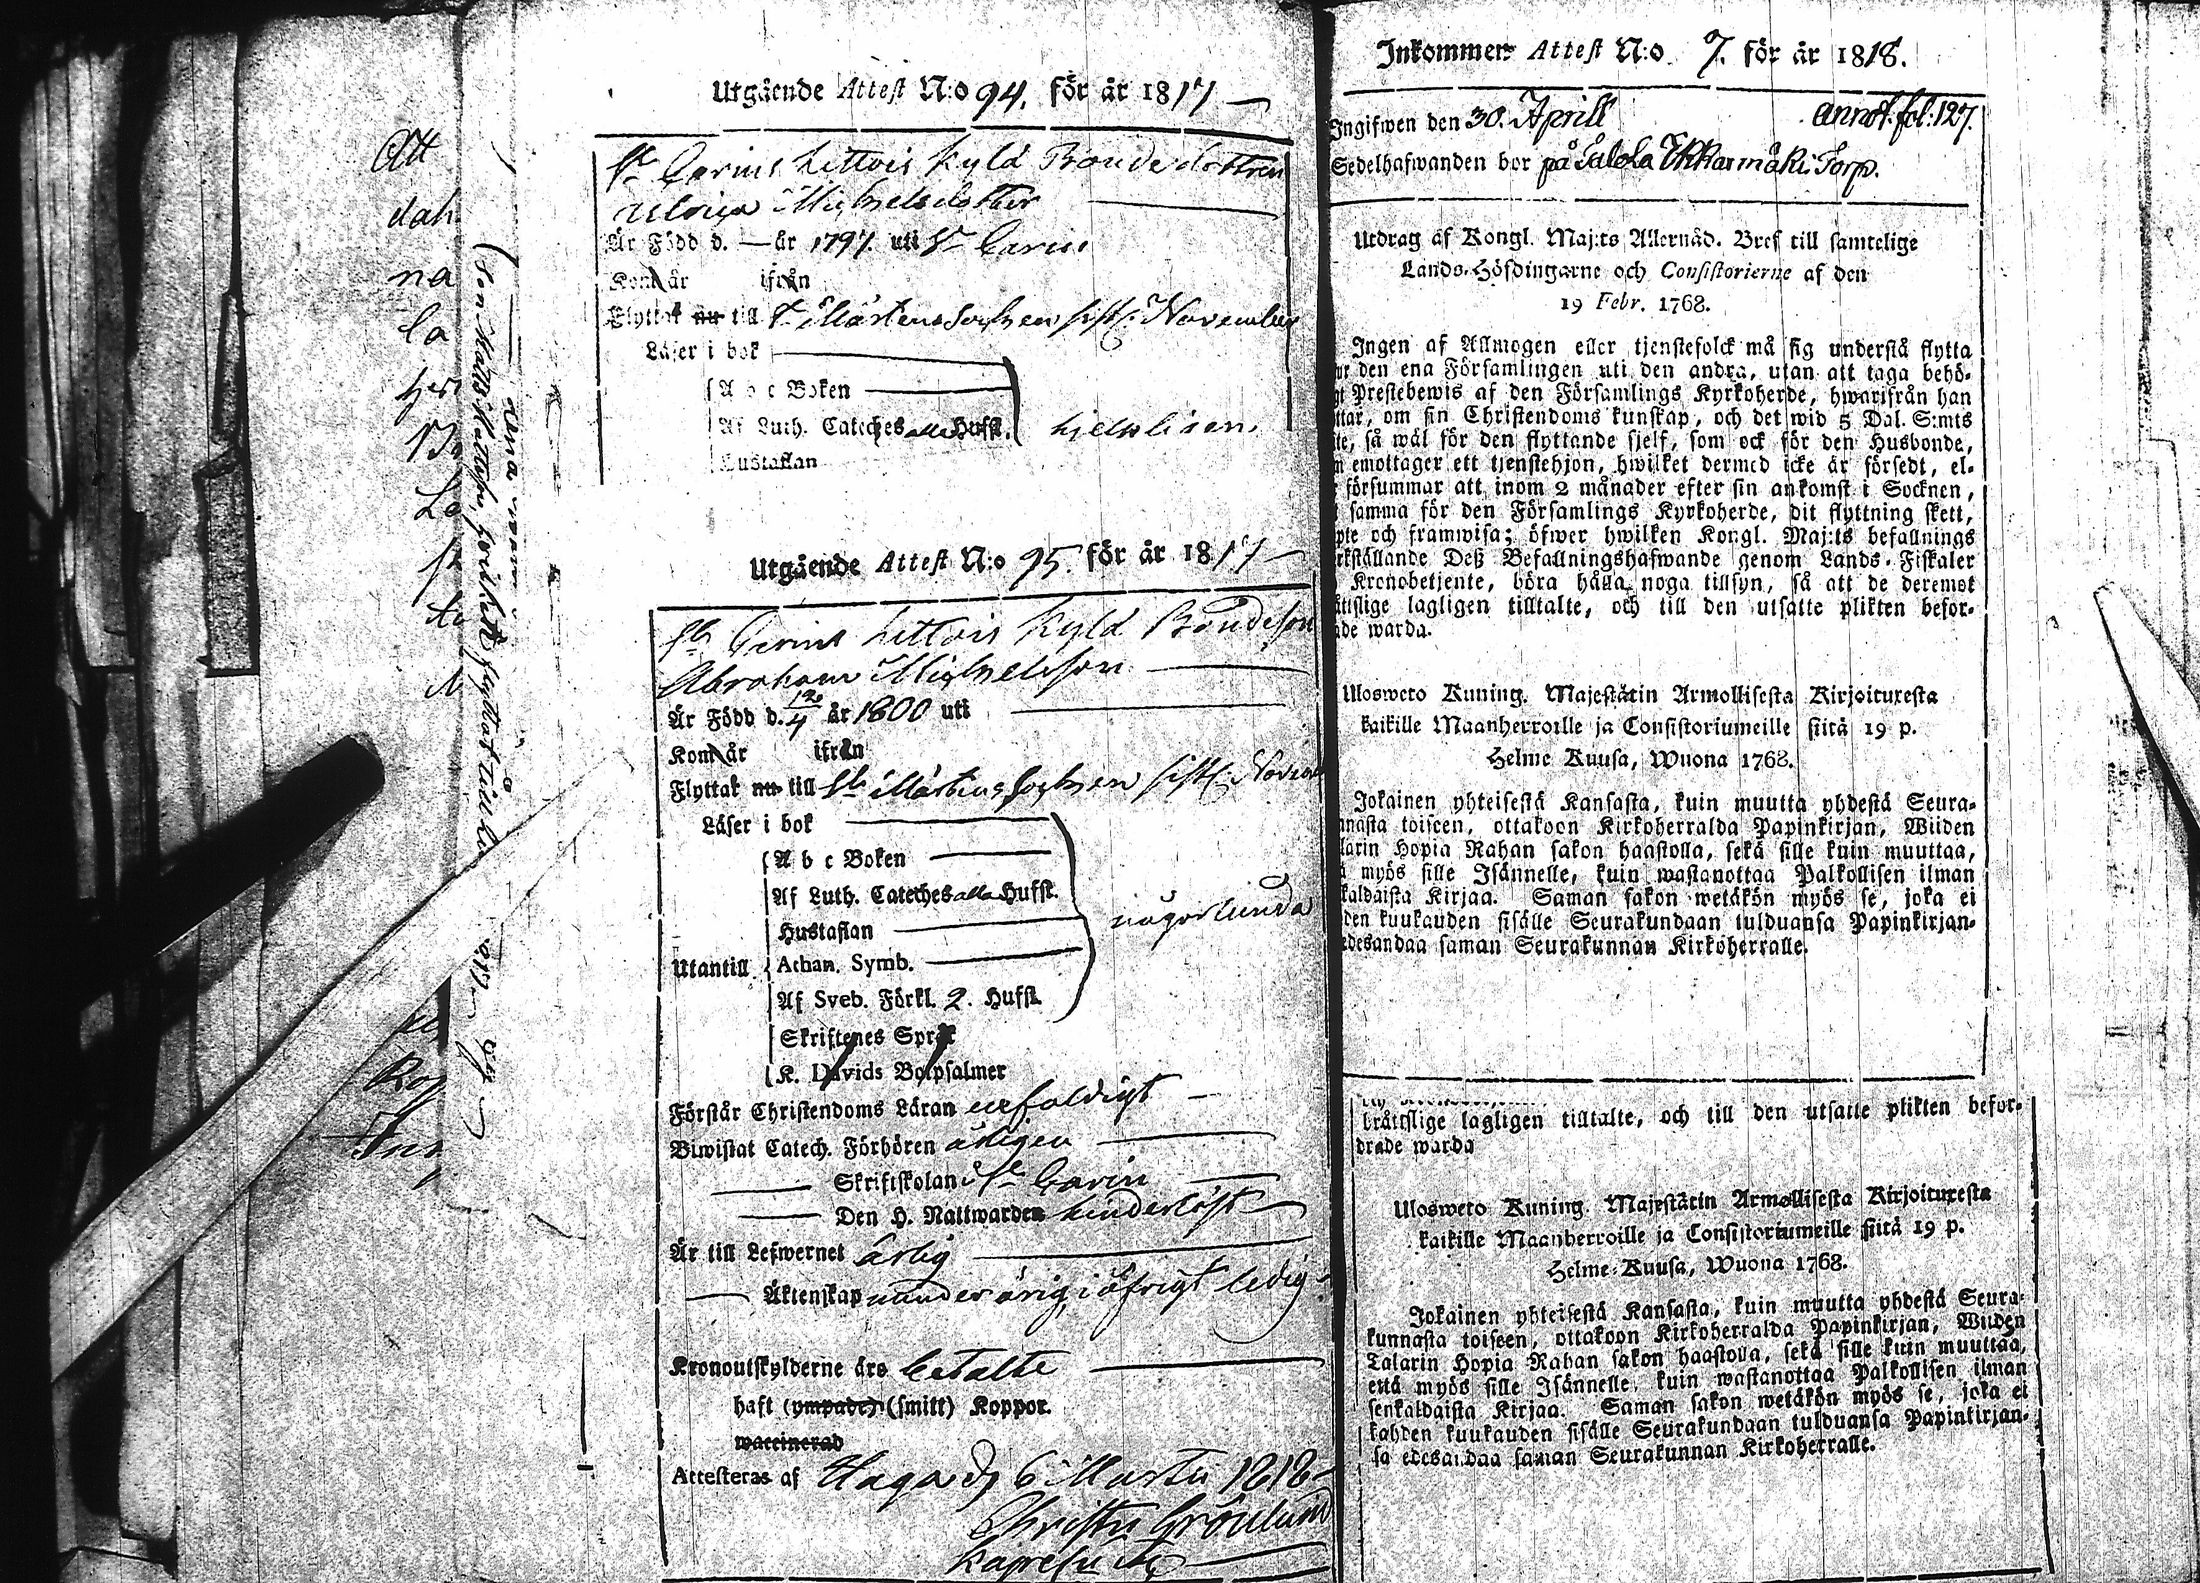 Att
dah
na
la
Utgående Attest N:o 94. för år 1817
St Carins Littois Kyld Bondedottren
Ulrica Michelsdotter
Är Född d. — år 1797. uti St Carin
Kom år ifrån
Flyttat nu till St Mårtens Sochen sistl. November
Läser i bok
A b c Boken
Af Luth. Cateches alla Hufst.
Hustaflan
hjelpligen
Utgående Attest N:o 95. för år 1817
St Carins Littois Kyld Bondeson
Abraham Michelsson
Är Född d. 120/4 år 1800 uti
Kom år ifrån
Flyttat nu till St Mårtens Sochen sistl. Novem
Läser i bok
A b c Boken
Af Luth. Cateches alla Hufst.
Hustaflan
någorlunda
Utantill Athan. Symb.
Af Sveb. Förkl. 2. Hufst.
Skriftenes Språk
K. Davids Botpsalmer
Förstår Christendoms Läran enfaldigt
Biwistat Catech. Förhören årligen
Skriftskolan i St Carin
Den H. Nattwarden hinderlöst
Är till Lefwernet ärlig
Äktenskap underårig, i öfrigt ledig
Kronoutskylderne äro betalte
haft (ympade) (smitt) Koppor.
waccinerad
Attesteras af Haga d. 6 Martii 1818
Christer Grönlund
Inkommen Attest N:o 7. för år 1818.
Ingifwen den 30. Aprill annot. fol: 127.
Sedelhafwanden bor på Talola Ekkarmäki Torp.
Utdrag af Kongl. Maj:ts Allernåd. Bref till samtelige
Lands-Höfdingarne och Consistorierne af den
19 Febr. 1768.
Ingen af Allmogen eller tjenstefolck må sig understå flytta
den ena Församlingen uti den andra, utan att taga behö-
Prestebewis af den Församlings Kyrkoherde, hwarifrån han
om sin Christendoms kunskap, och det wid 5 Dal. S:mts
så wäl för den flyttande sjelf, som ock för den Husbonde,
emottager ett tjenstehjon, hwilket dermed icke är försedt, el-
försummar att inom 2 månader efter sin ankomst i Socknen,
samma för den Församlings Kyrkoherde, dit flyttning skett,
och framwisa; öfwer hwilken Kongl. Maj:ts befallnings
Deß Befallningshafwande genom Lands-Fiskaler
Kronobetjente, böra hålla noga tillsyn, så att de deremot
lagligen tilltalte, och till den utsatte plikten befor-
de warda.
Uloswero Kuning. Majestätin Armollisesta Kirjoituxesta
kaikille Maanherroille ja Consistoriumeille siitä 19 p.
Helme Kuusa, Wuona 1768.
Jokainen yhteisestä Kansasta, kuin muutta yhdestä Seura-
nnasta toiseen, ottakoon Kirkoherralda Papinkirjan, Wiiden
larin Hopia Rahan sakon haastolla, sekä sille kuin muuttaa,
myös sille Isännelle, kuin wastanottaa Palkollisen ilman
kaldaista Kirjaa. Saman sakon wetäkön myös se, joka ei
den kuukauden sisälle Seurakundaan tulduansa Papinkirjan-
edesandaa saman Seurakunnan Kirkoherralle.
brättslige lagligen tilltalte, och till den utsatte plikten befor-
drade warda
Uloswero Kuning. Majestätin Armollisesta Kirjoituxesta
kaikille Maanherroille ja Consistoriumeille siitä 19 p.
Helme-Kuusa, Wuona 1768.
Jokainen yhteisestä Kansasta, kuin muutta yhdestä Seura-
kunnasta toiseen, ottakoon Kirkoherralda Papinkirjan, Wiiden
Talarin Hopia Rahan sakon haastolla, sekä sille kuin muuttaa,
että myös sille Isännelle, kuin wastanottaa Palkollisen ilman
senkaldaista Kirjaa. Saman sakon wetäkön myös se, joka ei
kahden kuukauden sisälle Seurakundaan tulduansa Papinkirjan-
sa edesandaa saman Seurakunnan Kirkoherralle.